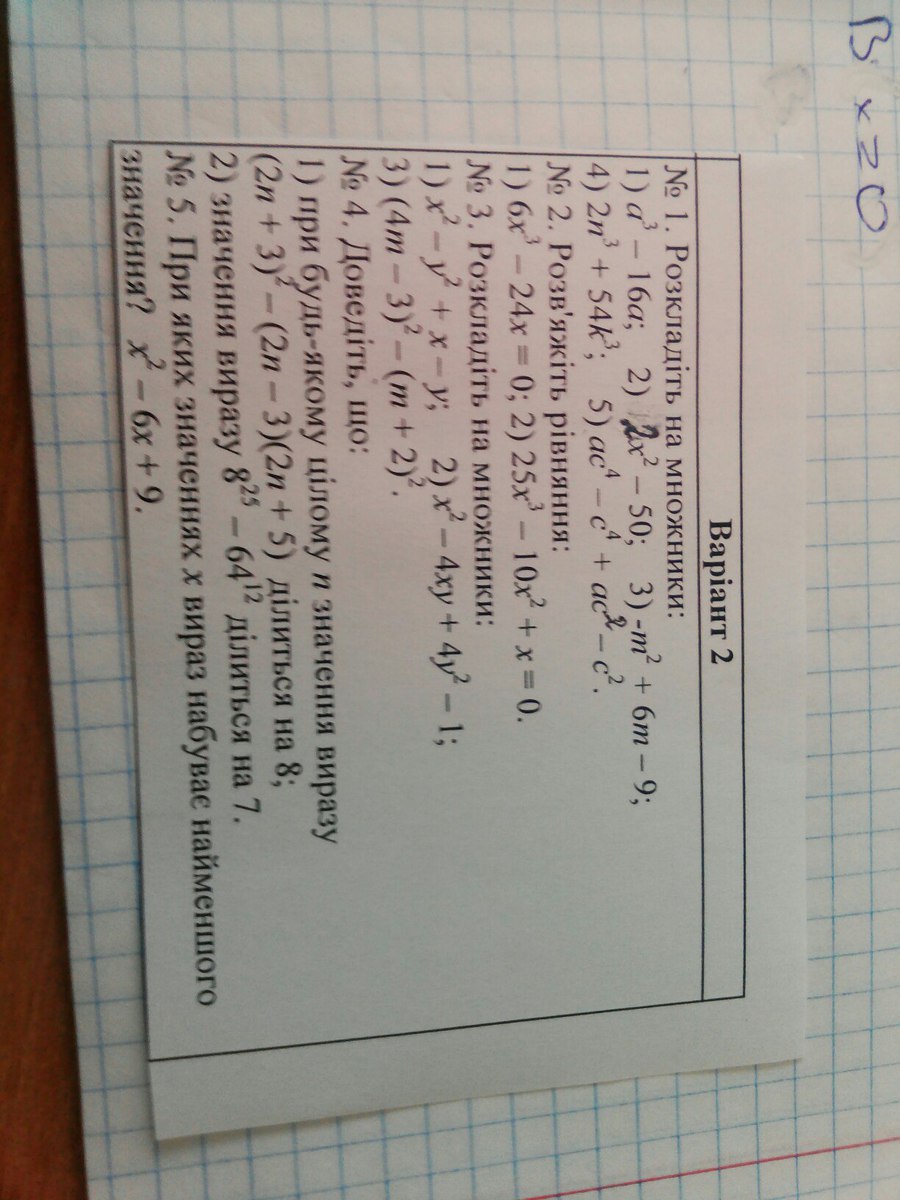 В x ≥ 0
Варіант 2
№ 1. Розкладіть на множники:
1) a³ – 16a; 2) 2x² – 50; 3) -m² + 6m – 9;
4) 2n³ + 54k³; 5) ac⁴ – c⁴ + ac² – c².
№ 2. Розв'яжіть рівняння:
1) 6x³ – 24x = 0; 2) 25x³ – 10x² + x = 0.
№ 3. Розкладіть на множники:
1) x² – y² + x – y; 2) x² – 4xy + 4y² – 1;
3) (4m – 3)² – (m + 2)².
№ 4. Доведіть, що:
1) при будь-якому цілому n значення виразу
(2n + 3)² – (2n – 3)(2n + 5) ділиться на 8;
2) значення виразу 8²⁵ – 64¹² ділиться на 7.
№ 5. При яких значеннях x вираз набуває найменшого
значення? x² – 6x + 9.